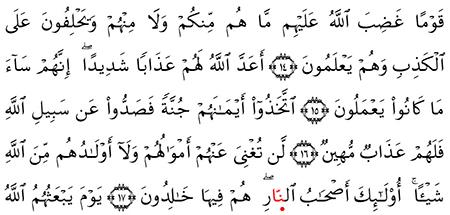 قَوْمًا غَضِبَ ٱللَّهُ عَلَيْهِم مَّا هُم مِّنكُمْ وَلَا مِنْهُمْ وَيَحْلِفُونَ عَلَى
ٱلْكَذِبِ وَهُمْ يَعْلَمُونَ ﴿١٤﴾ أَعَدَّ ٱللَّهُ لَهُمْ عَذَابًا شَدِيدًا ۖ إِنَّهُمْ سَآءَ
مَا كَانُوا۟ يَعْمَلُونَ ﴿١٥﴾ ٱتَّخَذُوٓا۟ أَيْمَـٰنَهُمْ جُنَّةً فَصَدُّوا۟ عَن سَبِيلِ ٱللَّهِ
فَلَهُمْ عَذَابٌ مُّهِينٌ ﴿١٦﴾ لَّن تُغْنِىَ عَنْهُمْ أَمْوَٰلُهُمْ وَلَآ أَوْلَـٰدُهُم مِّنَ ٱللَّهِ
شَيْـًٔا ۚ أُو۟لَـٰٓئِكَ أَصْحَـٰبُ ٱلنَّارِ ۖ هُمْ فِيهَا خَـٰلِدُونَ ﴿١٧﴾ يَوْمَ يَبْعَثُهُمُ ٱللَّهُ